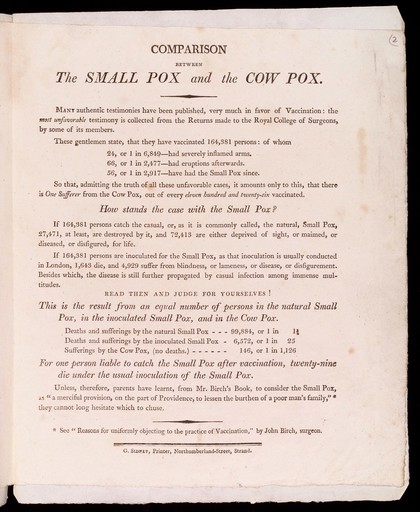 2
COMPARISON
BETWEEN
The SMALL POX and the COW POX.
MANY authentic testimonies have been published, very much in favor of Vaccination: the
most unfavorable testimony is collected from the Returns made to the Royal College of Surgeons,
by some of its members.
These gentlemen state, that they have vaccinated 164,381 persons: of whom
24, or 1 in 6,849—had severely inflamed arms.
66, or 1 in 2,477—had eruptions afterwards.
56, or 1 in 2,917—have had the Small Pox since.
So that, admitting the truth of all these unfavorable cases, it amounts only to this, that there
is One Sufferer from the Cow Pox, out of every eleven hundred and twenty-six vaccinated.
How stands the case with the Small Pox?
If 164,381 persons catch the casual, or, as it is commonly called, the natural, Small Pox,
27,471, at least, are destroyed by it, and 72,413 are either deprived of sight, or maimed, or
diseased, or disfigured, for life.
If 164,381 persons are inoculated for the Small Pox, as that inoculation is usually conducted
in London, 1,643 die, and 4,929 suffer from blindness, or lameness, or disease, or disfigurement.
Besides which, the disease is still further propagated by casual infection among immense mul-
titudes.
READ THEN AND JUDGE FOR YOURSELVES!
This is the result from an equal number of persons in the natural Small
Pox, in the inoculated Small Pox, and in the Cow Pox.
Deaths and sufferings by the natural Small Pox - - - 99,884, or 1 in 1⅔
Deaths and sufferings by the inoculated Small Pox - 6,572, or 1 in 25
Sufferings by the Cow Pox, (no deaths.) - - - - - - 146, or 1 in 1,126
For one person liable to catch the Small Pox after vaccination, twenty-nine
die under the usual inoculation of the Small Pox.
Unless, therefore, parents have learnt, from Mr. Birch's Book, to consider the Small Pox,
as "a merciful provision, on the part of Providence, to lessen the burthen of a poor man's family,"*
they cannot long hesitate which to chuse.
* See "Reasons for uniformly objecting to the practice of Vaccination," by John Birch, surgeon.
G. SIDNEY, Printer, Northumberland-Street, Strand.